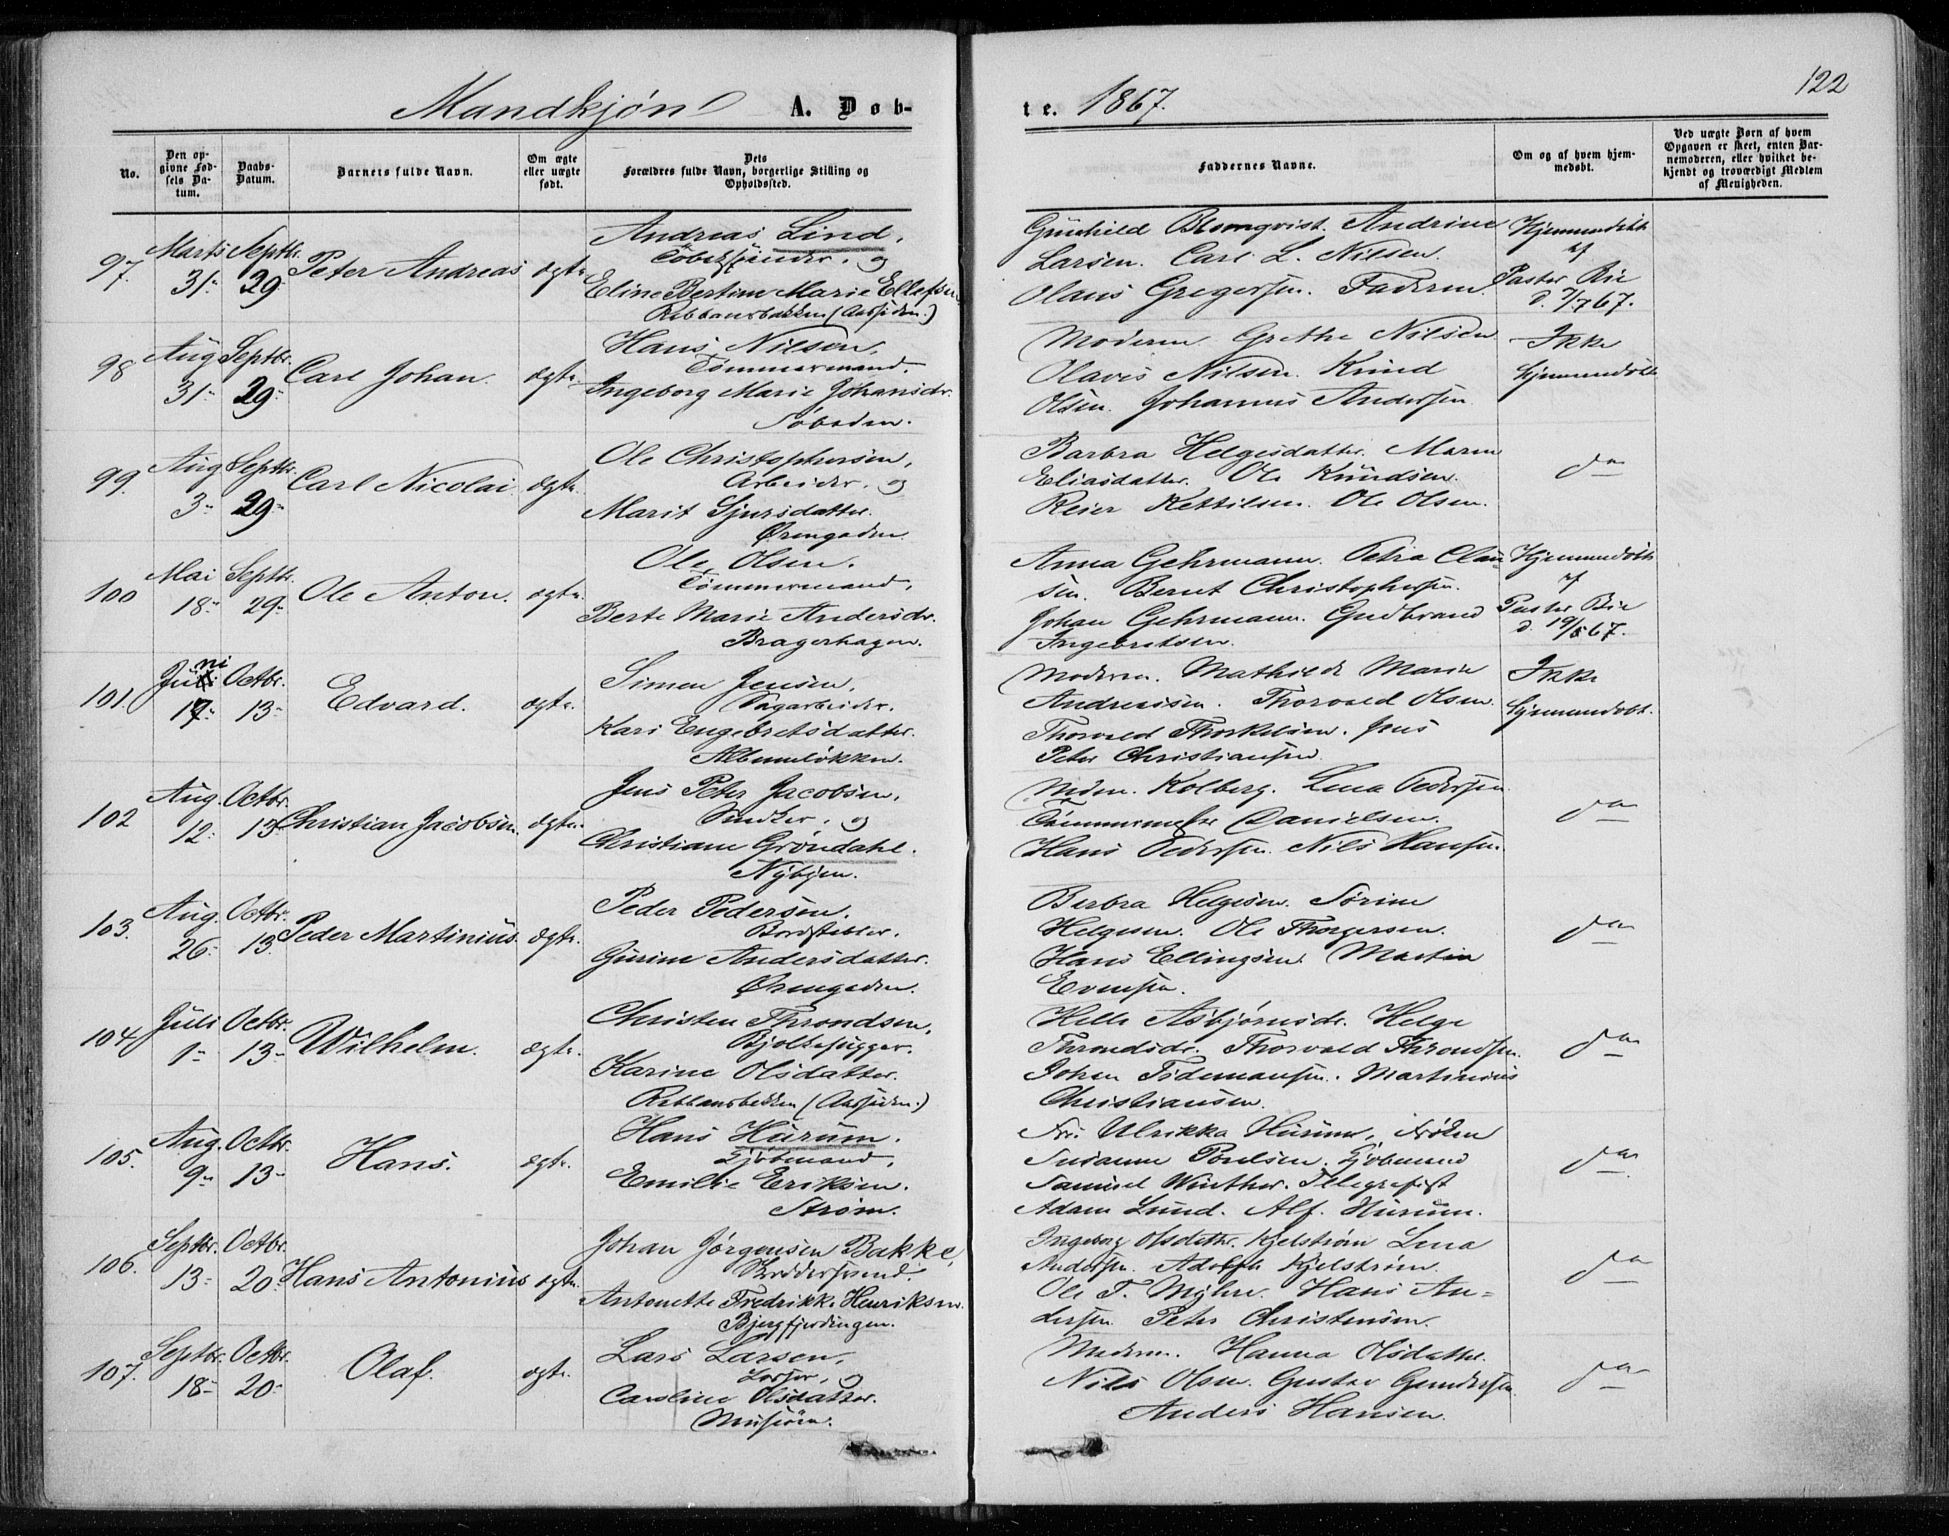 122
Mandkjøn A. Døb-
te. 1867.
No.
Den op-
givne Fød-
sels Da-
tum.
Daabs-
Datum.
Barnets fulde Navn.
Om ægte
eller uægte
født.
Dets
Forældres fulde Navn, borgerlige Stilling og
Opholdssted.
Faddernes Navne.
Om og af hvem hjem-
medøbt.
Ved uægte Børn af hvem
Opgaven er skeet, enten Bar-
nemoderen, eller hvilket be-
kjendt og troværdigt Medlem
af Menigheden.
97. Marts 31. Septbr. 29. Peter Andreas ægte.
Andreas Lind,
og
Eline Bertine Marie Ellefsen
(Aassiden.)
Gunhild Blomqvist. Andrine
Larsen. Carl L. Nilsen.
Olaus Gregersen. Faderen.
Hjemmedøbt
af
Pastor Bie
d. 7/7 67.
98 Aug 31. Septbr. 29. Carl Johan. ægte.
Hans Nilsen,
Tømmermand.
Ingeborg Marie Johansdr.
Moderen Grethe Nilsen
Olaves Nilsen. Knud
Olsen. Johannes Andersen.
Ikke
hjemmedøbt
99. Aug 3. Septbr. 29. Carl Nicolai. ægte.
Ole Christophersen,
Arbeider, og
Marit Sjursdatter.
Ørengaden.
Barbra Helgesdatter. Maren
Eliasdatter. Ole Knudsen.
Reier Kettilsen. Ole Olsen.
do
100 Mai 18. Septbr. 29. Ole Anton. ægte.
Ole Olsen.
Tømmermand,
Berte Marie Andersdr.
Bragerhagen.
Anna Gehrmann. Petra Clau
sen. Bernt Christophersen.
Johan Gehrmann. Gudbrand
Ingebretsen.
Hjemmedøbt
af
Pastor Bie
d. 19/5 67.
101. Juni 17. Octbr. 13. Edvard. ægte.
Simen Jensen,
Dagarbeider.
Kari Engebretsdatter.
Albumløkken.
Moderen. Mathilde Marie
Andreasen. Thorvald Olsen.
Thorvald Thorkelsen. Jens
Peter Christiansen
Ikke
hjemmedøbt.
102 Aug. 12. Octbr. 13. Christian Jacobsen. ægte.
Jens Peter Jacobsen,
og
Christiane Grøndahl.
Nybyen.
Kolberg. Lena Pedersen
Danielsen.
Hans Pedersen. Nils Hansen.
do
103. Aug. 26. Octbr. 13. Peder Martinius. ægte.
Peder Pedersen.
Bordstabler.
Gurine Andersdatter.
Ørengaden.
Berbra Helgesen. Sørine
Helgesen. Ole Thorgersen.
Hans Ellingsen. Martin
Evensen.
do
104. Juli 1. Octbr. 13. Wilhelm. ægte.
Christen Throndsen,
Bjelkehugger.
Karine Olsdatter.
(Aassiden.)
Helle Asbjørnsdr. Helge
Throndsdr. Thorvald Throndsen.
Johan Tidemansen. Martinius
Christiansen.
do
105. Aug. 9. Octbr. 13. Hans. ægte.
Hans Hurum.
Kjøbmand,
Emilie Eriksen.
Strøm.
Fru Ulrikka Hurum, Frøken
Susanne Poulsen. Kjøbmand
Samuel Winther. Telegrafist
Adam Lund. Alf. Hurum.
do
106. Septbr. 13. Octbr. 20. Hans Antonius ægte.
Johan Jørgensen Bakke,
Skræddersvend.
Antonette Fredrikke Henriksen.
Bjergfjerdingen.
Ingeborg Olsdatter. Kjelstrøm Lena
Andersen. Adolph Kjelstrøm.
Ole T. Myhre. Hans An-
dersen Peter Christensen.
do
107. Septbr. 18. Octbr. 20. Olaf. ægte.
Lars Larsen,
og
Caroline Olsdatter.
Moderen. Hanna Olsdatter.
Nils Olsen. Gustav Gundersen.
Anders Hansen.
do